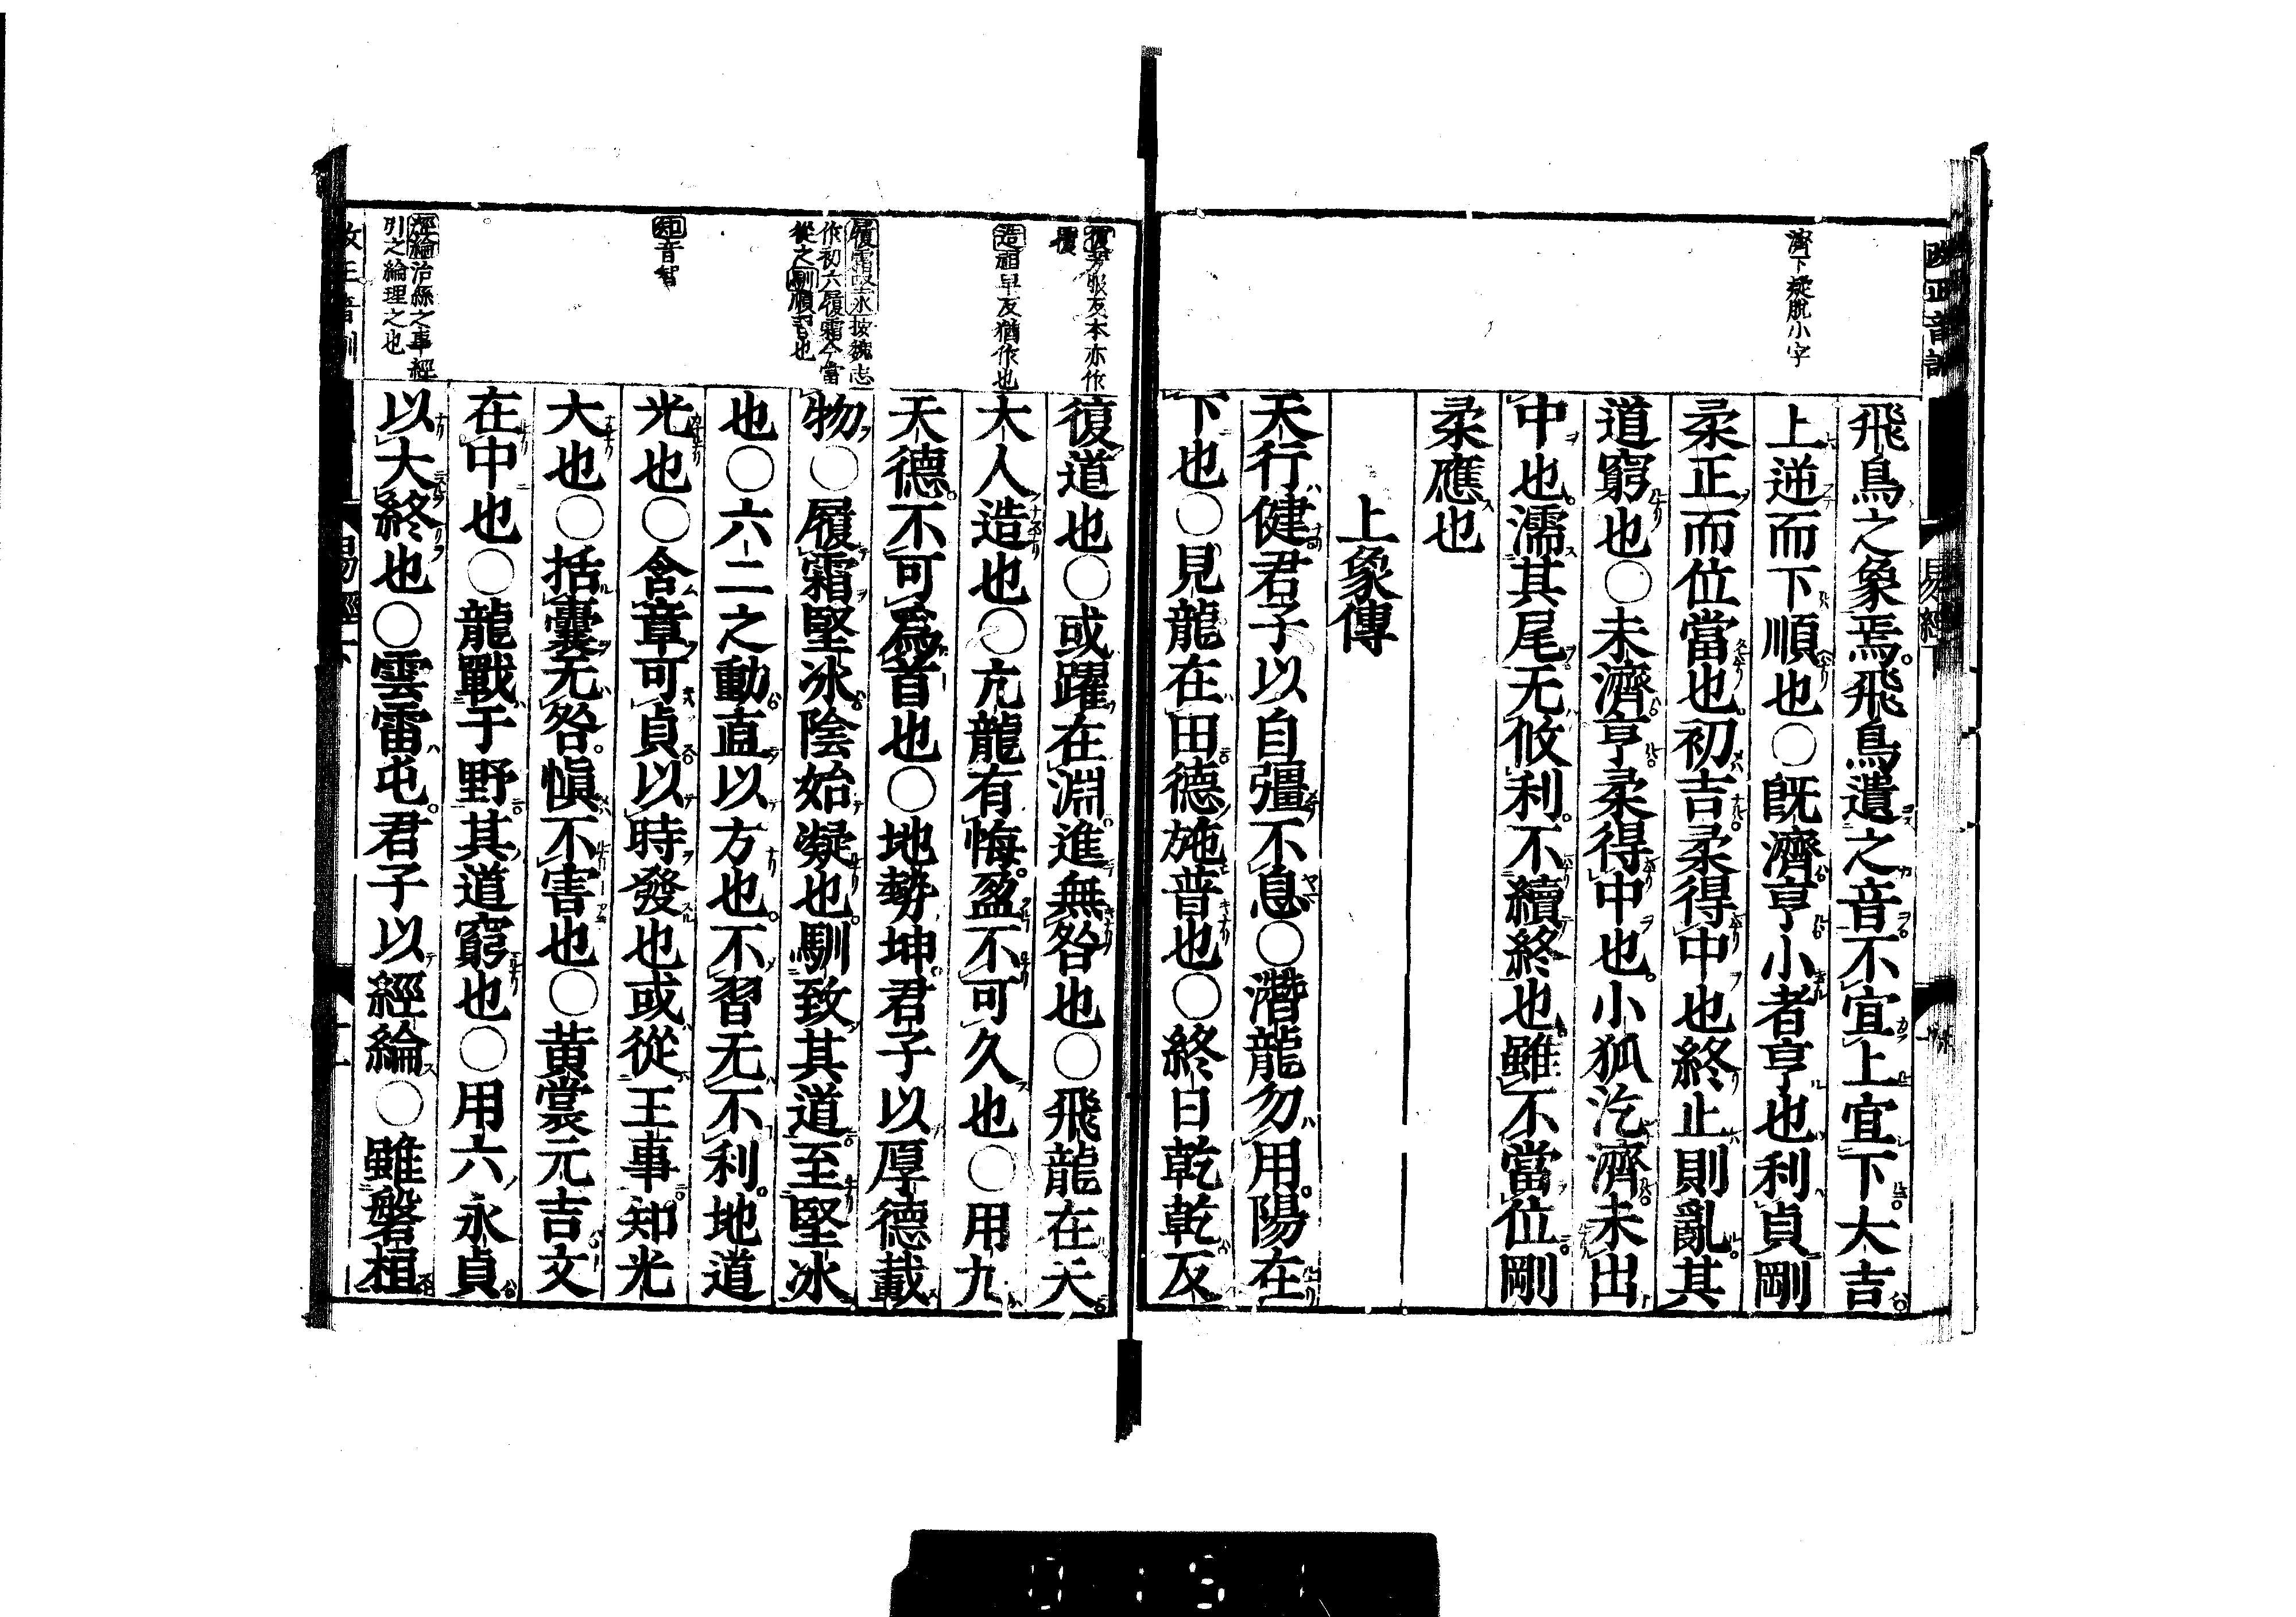 改正音訓
易經下
濟下疑脫小字
飛鳥之象焉。飛鳥遺之音不宜上宜下大吉
上逆而下順也○既濟亨小者亨也利貞剛
柔正而位當也。初吉柔得中也終止則亂。其
道窮也○未濟亨柔得中也。小狐汔濟未出
中也。濡其尾无攸利。不續終也雖不當位剛
柔應也
上象傳
天行健君子以自彊不息○潛龍勿用。陽在
下也○見龍在田德施普也○終日乾乾反
復芳服反本亦作
覆
造祖早反猶作也
履霜堅冰按魏志
作初六履霜今當
從之馴順習也
知音智
經綸治絲之事經
引之綸理之也
復道也○或躍在淵進無咎也○飛龍在天
大人造也○亢龍有悔。盈不可久也○用九
天德。不可爲首也○地勢坤君子以厚德載
物○履霜堅冰陰始凝也。馴致其道至堅冰
也○六二之動直以方也。不習无不利。地道
光也○含章可貞以時發也或從王事。知光
大也○括囊无咎。愼不害也○黃裳元吉文
在中也○龍戰于野其道窮也○用六永貞
以大終也○雲雷屯。君子以經綸○雖磐桓
改正音訓
易經下